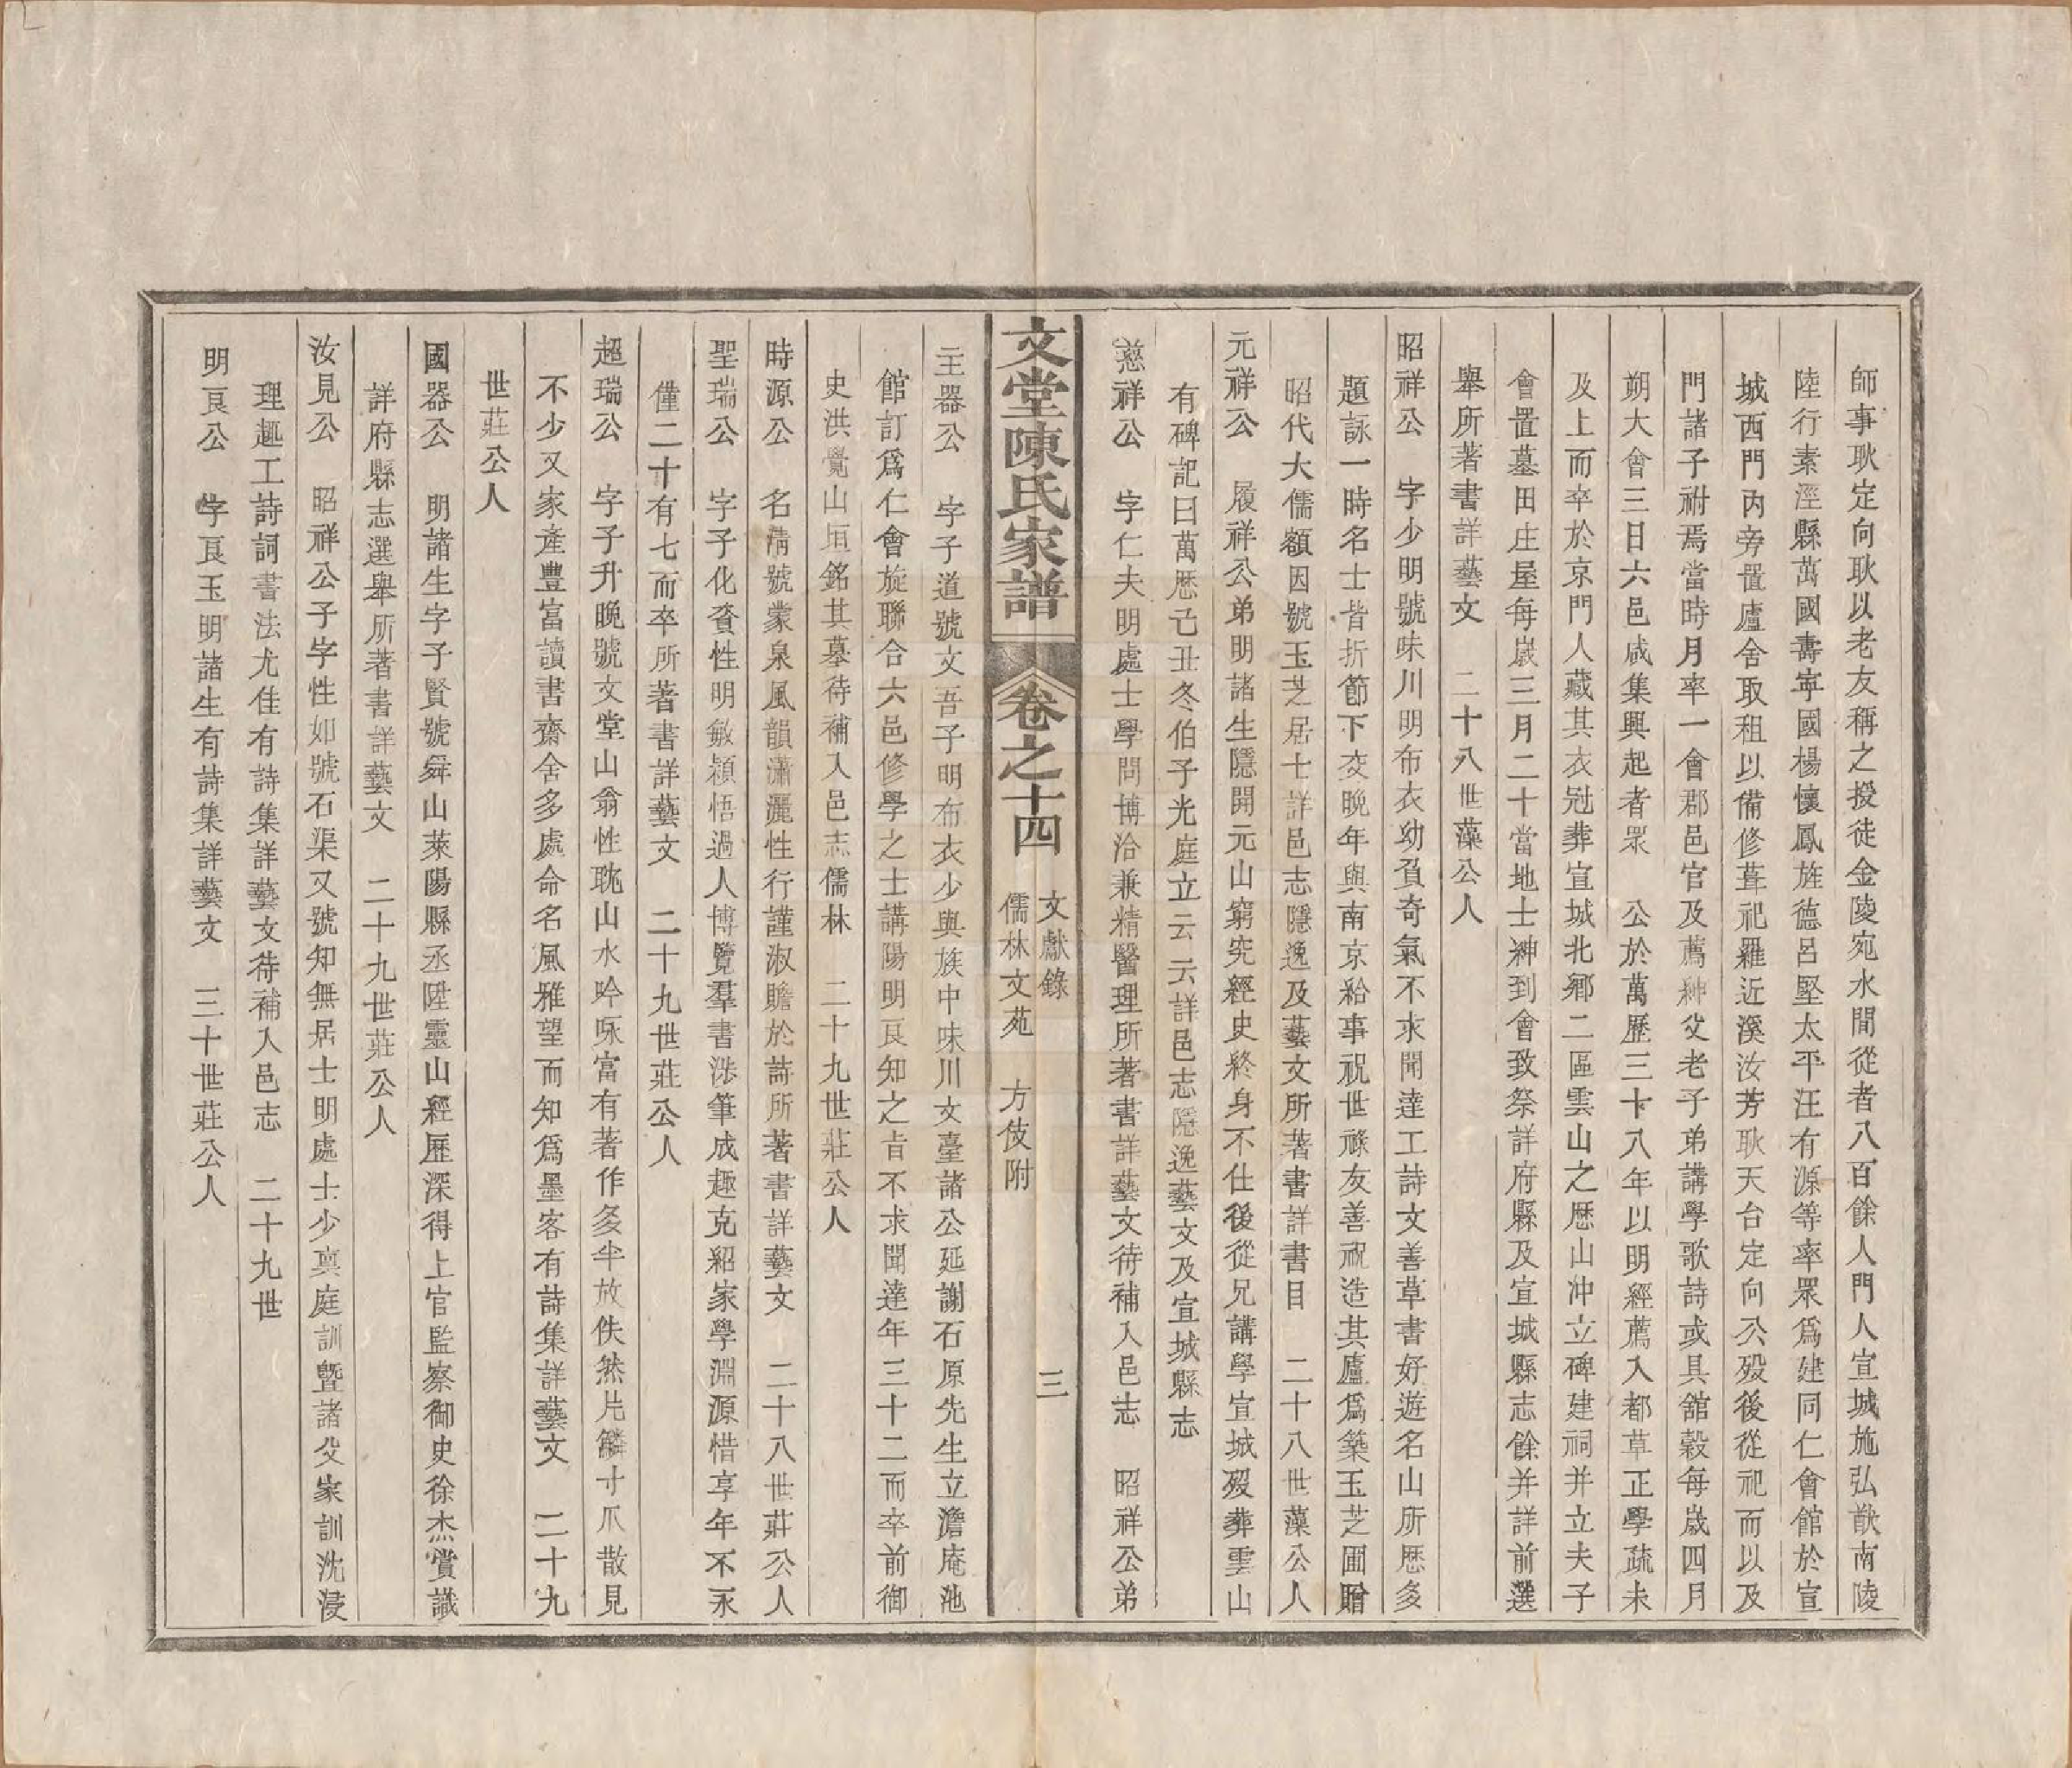 師事耿定向耿以老友稱之授徒金陵宛水間從者八百餘人門人宣城施弘猷南陵
陸行素涇縣萬國壽寧國楊懷鳳旌德呂堅太平汪有源等率眾爲建同仁會館於宣
城西門內旁置廬舍取租以備修葺祀羅近溪汝芳耿天台定向公歿後從祀而以及
門諸子祔焉當時月率一會郡邑官及薦紳父老子弟講學歌詩或具舘穀每嵗四月
朔大會三日六邑咸集興起者眾　公於萬歷三十八年以明經薦入都草正學疏未
及上而卒於京門人藏其衣冠葬宣城北鄉二區雲山之厯山沖立碑建祠并立夫子
會置墓田庄屋每嵗三月二十當地士紳到會致祭詳府縣及宣城縣志餘并詳前選
舉所著書詳藝文　二十八世藻公人
昭祥公　字少明號味川明布衣幼負奇氣不求聞達工詩文善草書好遊名山所厯多
題詠一時名士皆折節下交晚年與南京給事祝世祿友善祝造其廬爲築玉芝圃贈
昭代大儒額因號玉芝居士詳邑志隱逸及藝文所著書詳書目　二十八世藻公人
元祥公　履祥公弟明諸生隱開元山窮究經史終身不仕後從兄講學宣城歿葬雲山
有碑記曰萬厯己丑冬伯子光庭立云云詳邑志隱逸藝文及宣城縣志
慈祥公　字仁夫明處士學問博洽兼精醫理所著書詳藝文待補入邑志　昭祥公弟
文堂陳氏家譜　卷之十四　文獻錄　儒林文苑　方伎附　三
主器公　字子道號文吾子明布衣少與族中味川文臺諸公延謝石原先生立澹庵池
館訂爲仁會旋聯合六邑修學之士講陽明良知之旨不求聞達年三十二而卒前御
史洪覺山垣銘其墓待補入邑志儒林　二十九世莊公人
時源公　名淸號蒙泉風韻瀟灑性行謹淑贍於詩所著書詳藝文　二十八世莊公人
聖瑞公　字子化資性明敏穎悟過人博覽羣書涉筆成趣克紹家學淵源惜享年不永
僅二十有七而卒所著書詳藝文　二十九世莊公人
超瑞公　字子升晚號文堂山翁性耽山水吟咏富有著作多半放佚然片鱗寸爪散見
不少又家產豐富讀書齋舍多處命名風雅望而知爲墨客有詩集詳藝文　二十九
世莊公人
國器公　明諸生字子賢號舜山萊陽縣丞陞靈山經歷深得上官監察御史徐杰賞識
詳府縣志選舉所著書詳藝文　二十九世莊公人
汝見公　昭祥公子字性如號石渠又號知無居士明處士少稟庭訓曁諸父家訓沈浸
理趣工詩詞書法尤佳有詩集詳藝文待補入邑志　二十九世
明良公　字良玉明諸生有詩集詳藝文　三十世莊公人